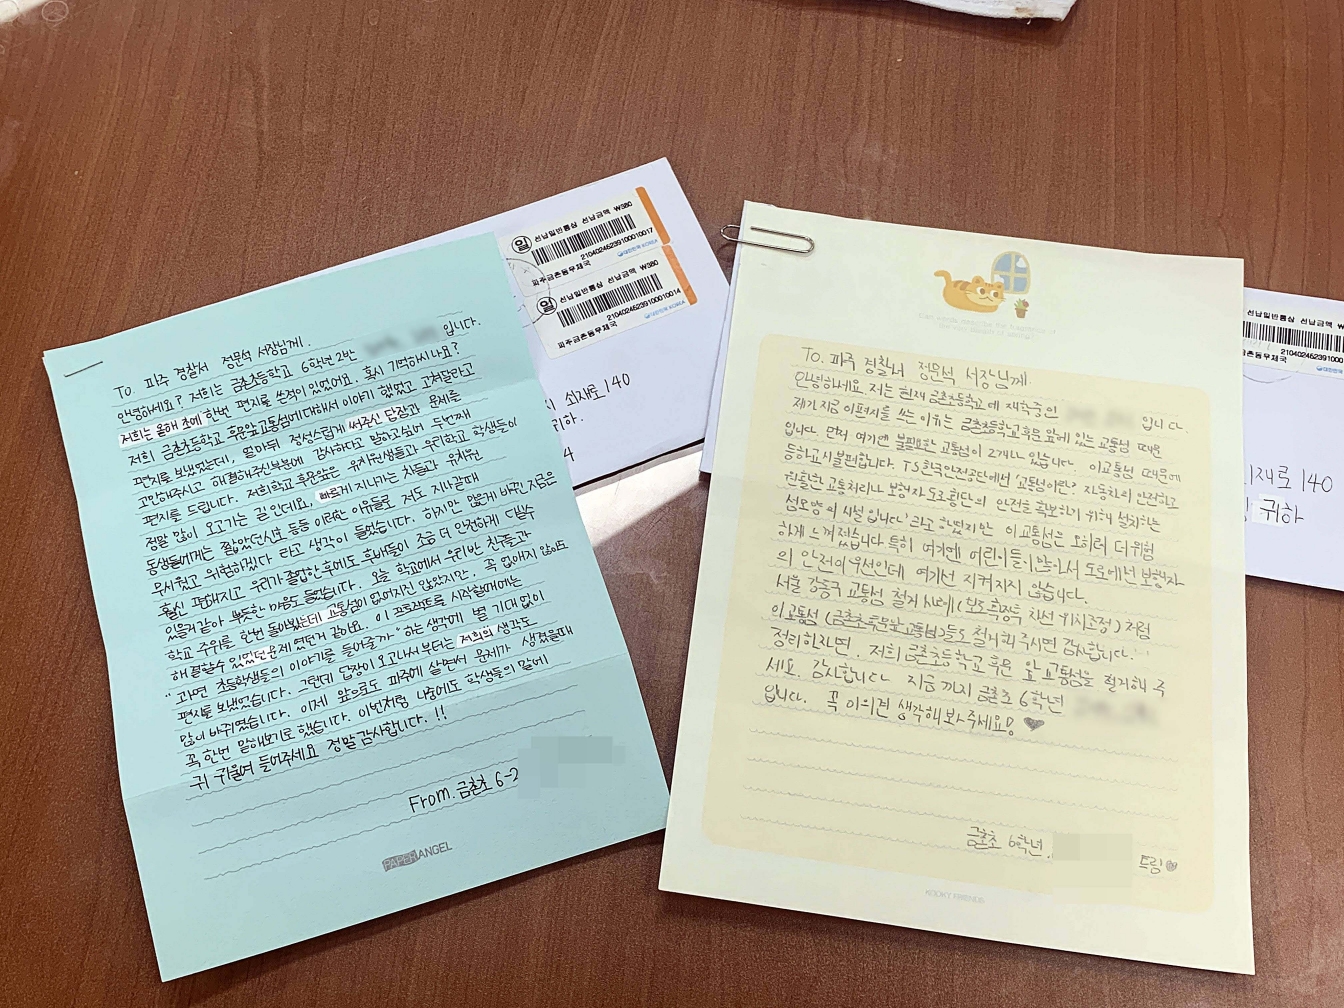 To 파주 경찰서 정문석 서장님께.
안녕하세요? 저희는 금촌초등학교 6학년 2반 입니다.
저희는 올해 초에 한번 편지를 쓴적이 있었어요. 혹시 기억하시나요?
저희 금촌초등학교 후문앞교통섬에대해서 이야기 했었고 고쳐달라고
편지를 보냈었는데, 얼마뒤 정성스럽게 써주신 답장과 문제를
고민해주시고 해결해주신부분에 감사하다고 말하고싶어 두번째
편지를 드립니다. 저희학교 후문앞은 유치원생들과 우리학교 학생들이
정말 많이 오고가는 길 인데요, 빠르게 지나가는 차들과 유치원
동생들에게는 짧았던신호 등등 이러한 이유들로 저도 지나갈때
무서웠고 위험하겠다 라고 생각이 들었습니다. 하지만 많은게 바뀐 지금은
훨씬 편해지고 우리가 졸업한후에도 후배들이 조금 더 안전하게 다닐수
있을거같아 뿌듯한 마음도 들었습니다. 오늘 학교에서 우리반 친구들과
학교 주위를 한번 돌아봤는데 교통섬이 없어지진 않았지만, 꼭 없애지 않아도
해결할수 있었던 문제였던거 같아요. 이 프로젝트를 시작할때에는
"과연 초등학생들의 이야기를 들어줄가" 하는 생각에 별 기대 없이
편지를 보냈었습니다. 그런데 답장이 오고나서부터는 저희의 생각도
많이 바뀌였습니다. 이제 앞으로도 파주에 살면서 문제가 생겼을때
꼭 한번 말해보기로 했습니다. 이번처럼 나중에도 학생들의 말에
귀 귀울여 들어주세요 정말감사합니다.!!
From. 금촌초 6-2
PAPER ANGEL
일 선납일반통상 선납금액 ₩380
2104024623910001 0017
대한민국 KOREA
파주금촌동우체국
일 선납일반통상 선납금액 ₩380
2104024623910001 0014
대한민국 KOREA
파주금촌동우체국
쇠재로 140
귀하.
To. 파주 경찰서 정문석 서장님께.
안녕하세요. 저는 현재 금촌초등학교에 재학중인 입니다.
제가 지금 이편지를 쓰는 이유는 금촌초등학교후문 앞에 있는 교통섬 때문
입니다. 먼저 여기엔 불필요한 교통섬이 2개나 있습니다 이교통섬 때문에
등하교시 불편합니다. TS한국안전공단에서 '교통섬이란? 자동차의 안전하고
원활한 교통처리나 보행자 도로횡단의 안전을 확보하기 위해 설치하는
섬모양의 시설 입니다' 라고 하였지만 이교통섬은 오히려 더 위험
하게 느껴졌습니다 특히 여기엔 어린이들이많아서 도로에선 보행자
의 안전이 우선인데 여기선 지켜지지 않습니다.
서울 강동구 교통섬 철거 사례( 차선 위치조정)처럼
이교통섬 (금촌초후문앞교통섬)등도 철거해 주시면 감사합니다.
정리하자면, 저희 금촌초등학교 후문 앞 교통섬을 철거해 주
세요. 감사합니다 지금까지 금촌초 6학년
입니다. 꼭 이의견 생각해봐주세요! ♥
금촌초 6학년. 드림♥
KOOKY FRIENDS
선납일반통상 선납금액 ₩3
대한민국
쇠재로 140
귀하